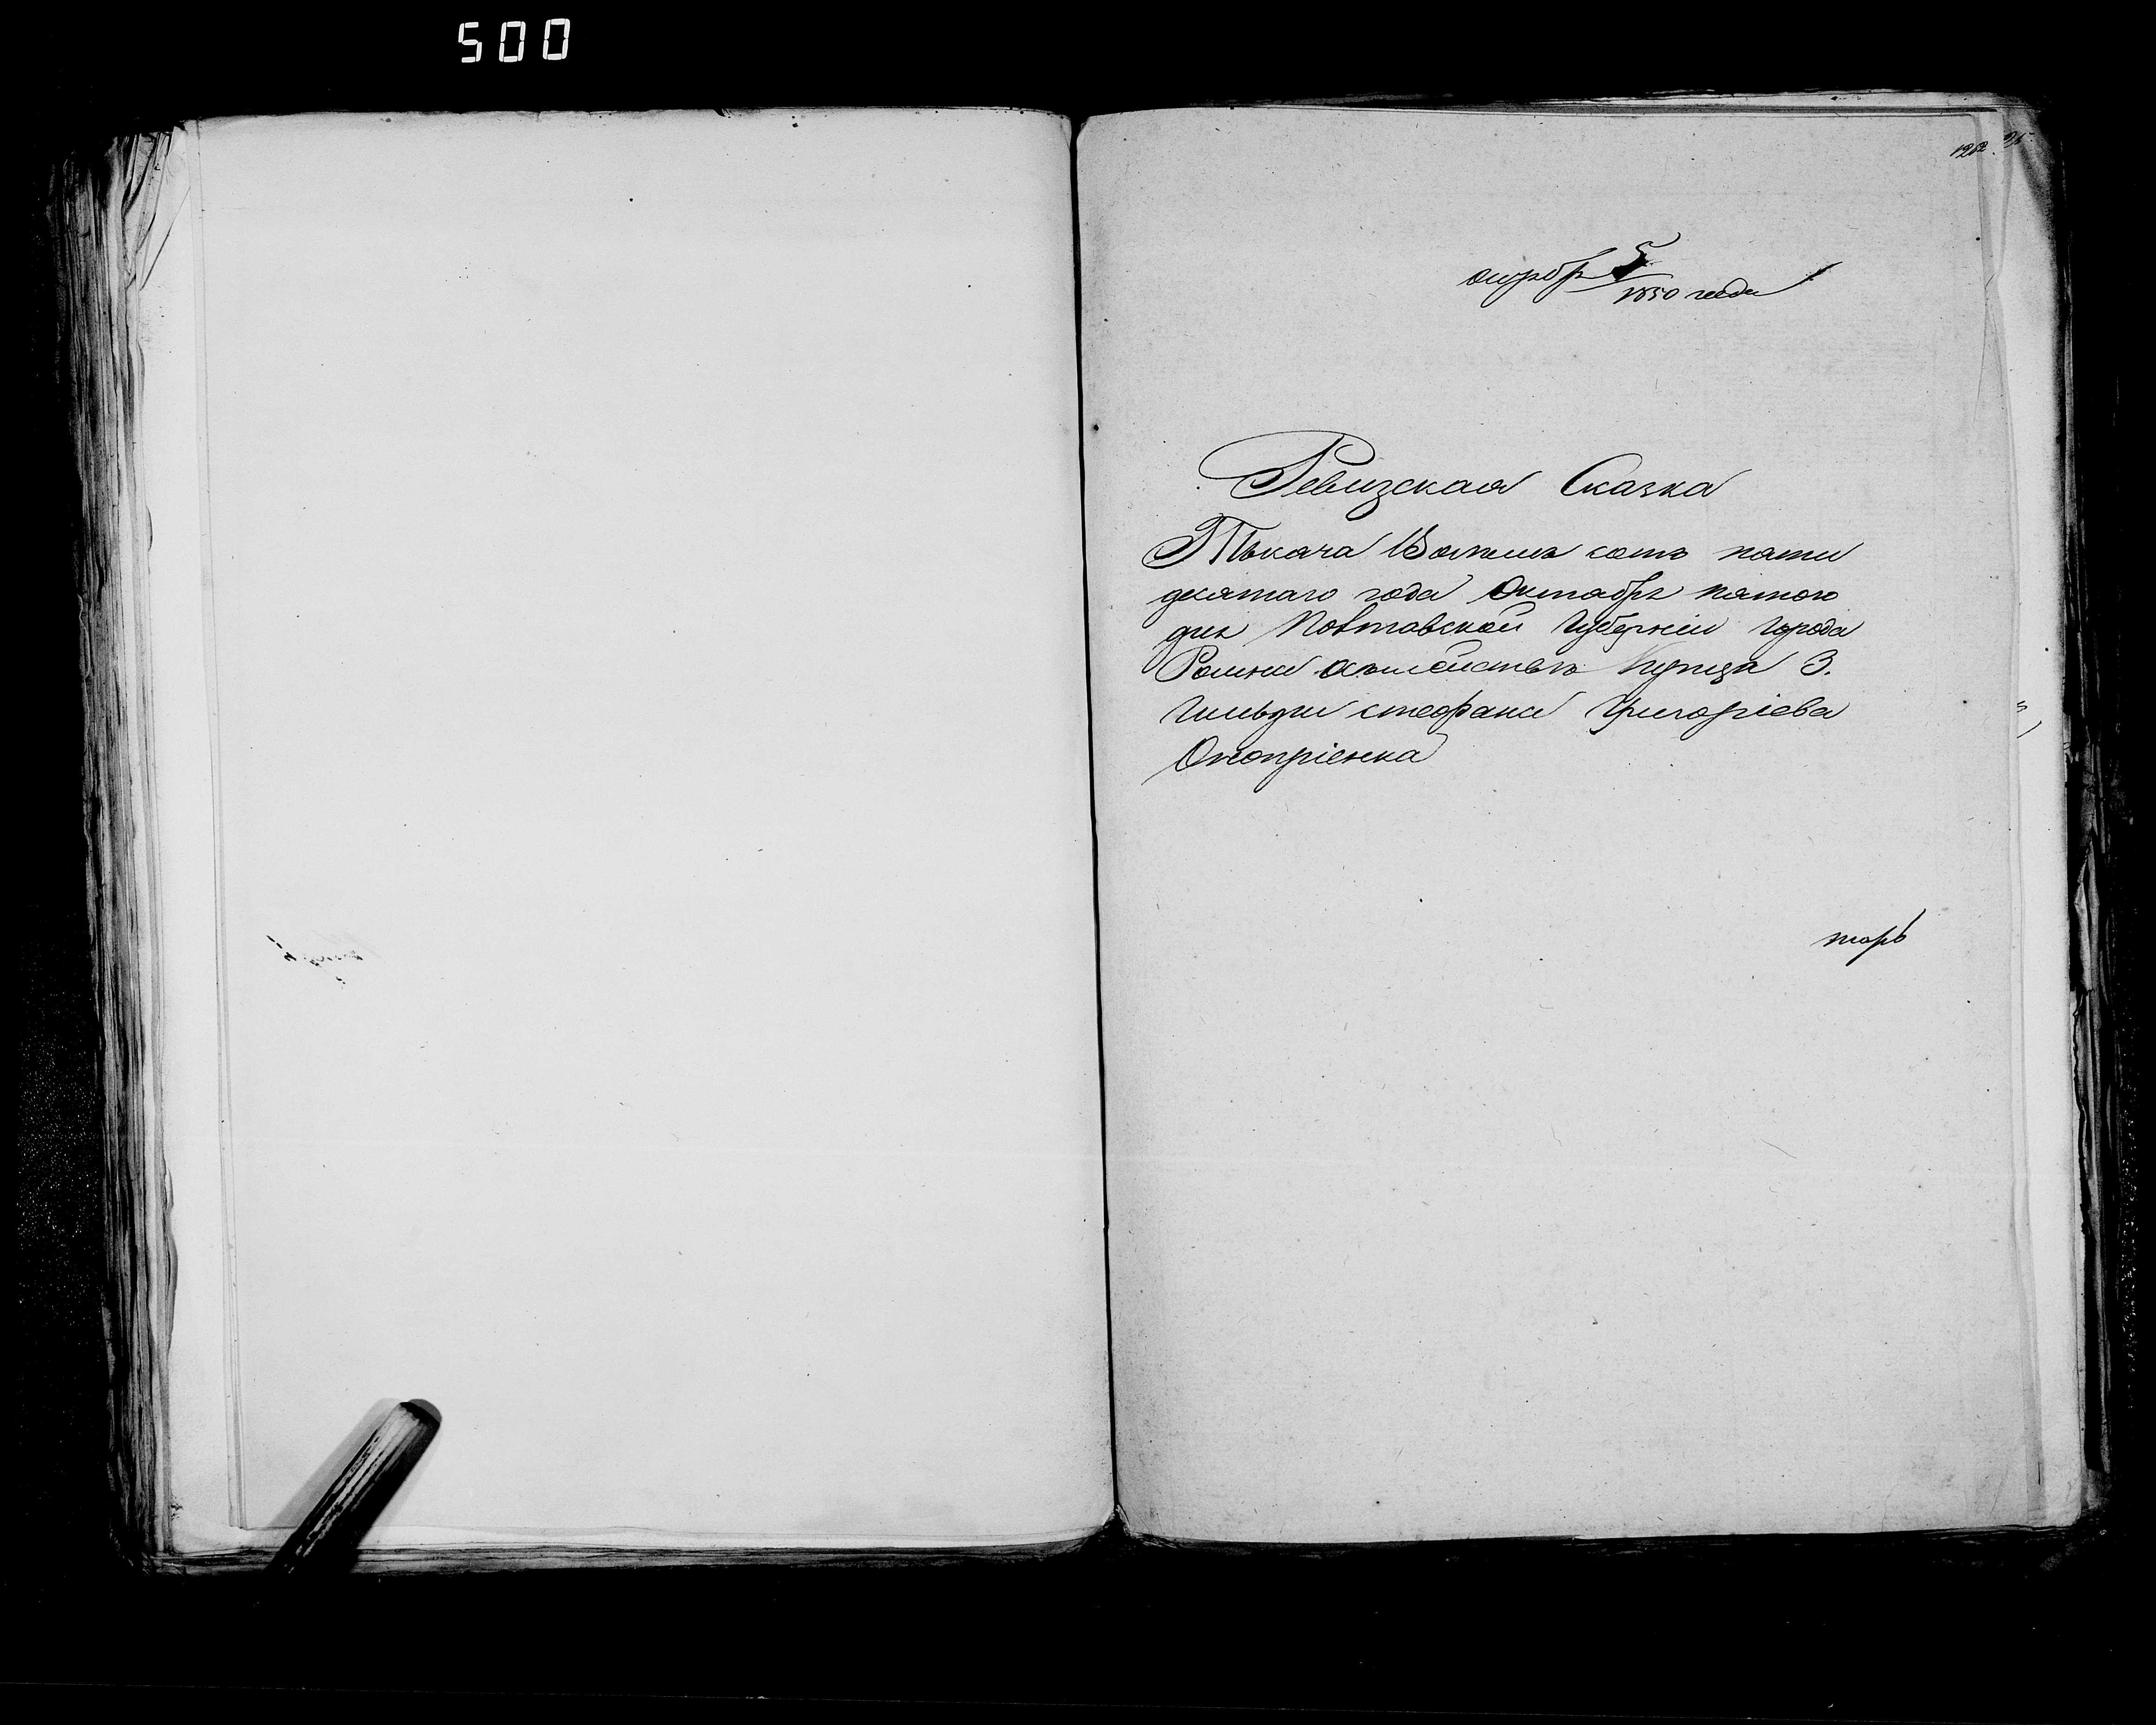 500
1262
октбр 5
1850 года
Ревизская Сказка
Тысяча Восемь сотъ пяти
десятаго года Октября пятого
дня Полтавской Губерніи города
Ромна Купца 3.
Гильдии стефана Григоріева
Оноприенка
торъ